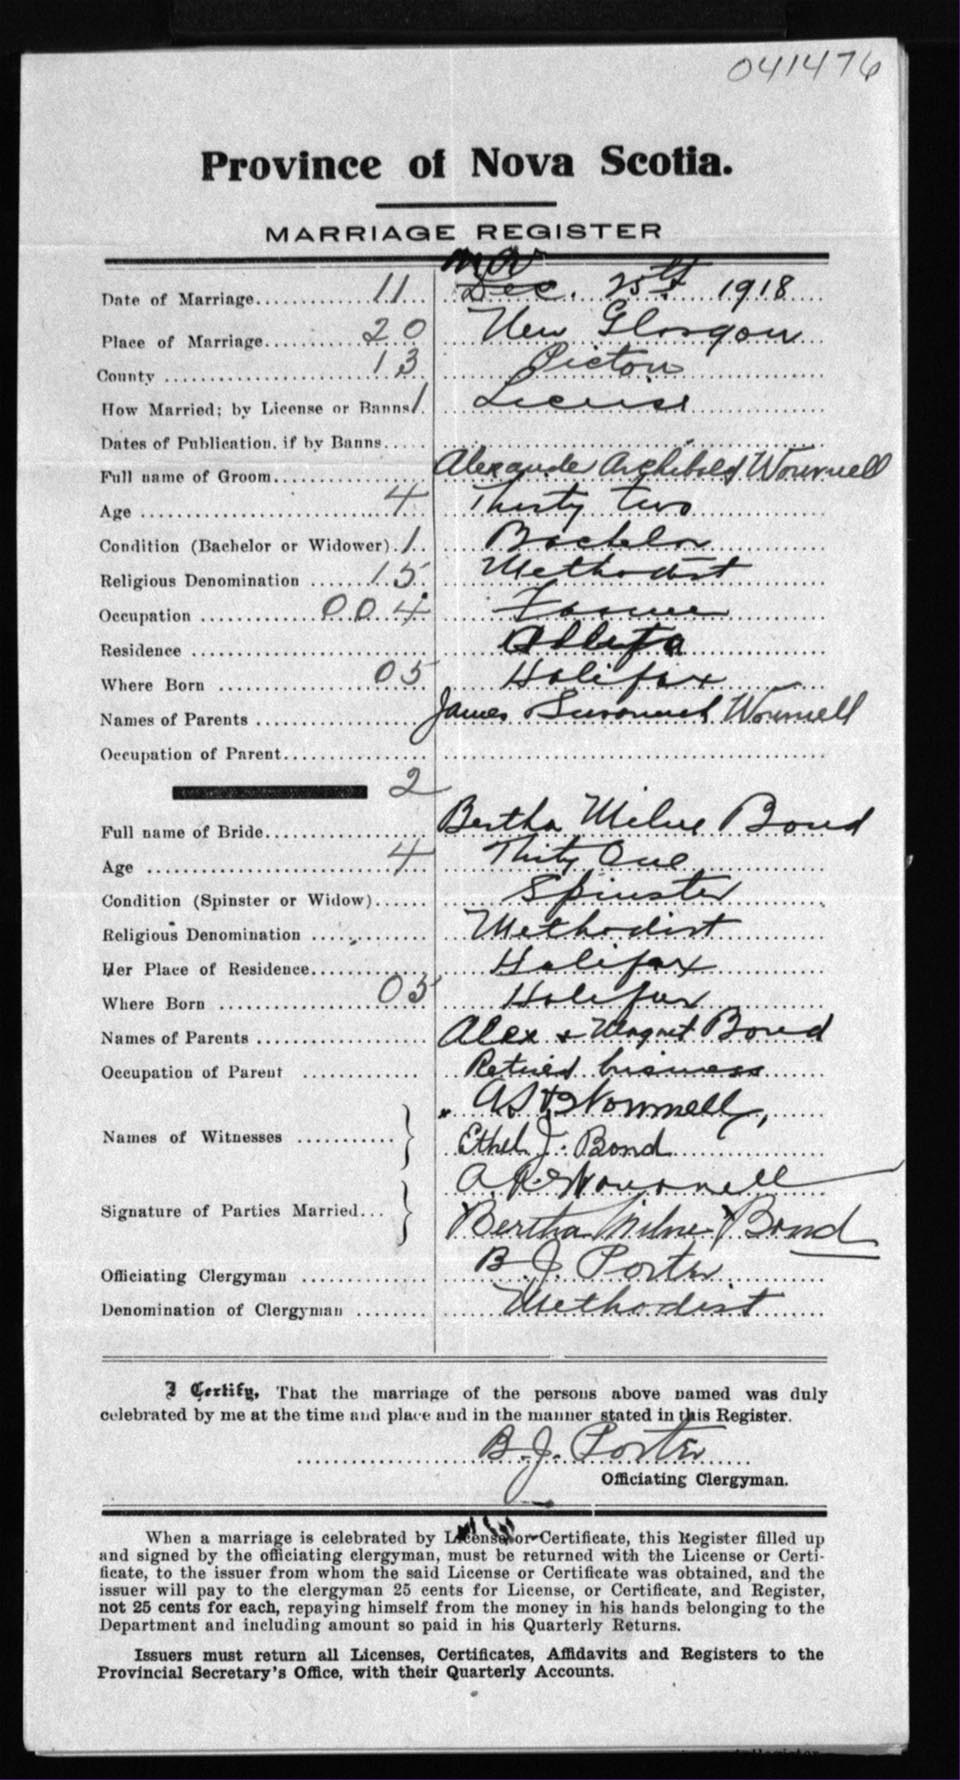 041476
Province of Nova Scotia.
MARRIAGE REGISTER
Nov
Date of Marriage 11 Dec. 25th 1918
Place of Marriage 20 New Glasgow
County 13 Pictou
How Married; by License or Banns 1 License
Dates of Publication, if by Banns
Full name of Groom Alexander Archibald Wournell
Age 4 Thirty two
Condition (Bachelor or Widower) 1 Bachelor
Religious Denomination 15 Methodist
Occupation 004 Farmer
Residence Alberta
Where Born 05 Halifax
Names of Parents James Susannah Wournell
Occupation of Parent
2
Full name of Bride Bertha Milne Bond
Age 4 Thirty One
Condition (Spinster or Widow) Spinster
Religious Denomination Methodist
Her Place of Residence Halifax
Where Born 05 Halifax
Names of Parents Alex & Magret Bond
Occupation of Parent Retired business
Wournell,
Names of Witnesses
Ethel J. Bond
A. Wournell
Signature of Parties Married
Bertha Milne Bond
Officiating Clergyman B. J. Porter
Denomination of Clergyman Methodist
I Certify, That the marriage of the persons above named was duly
celebrated by me at the time and place and in the manner stated in this Register.
B. J. Porter
Officiating Clergyman.
When a marriage is celebrated by License or Certificate, this Register filled up
and signed by the officiating clergyman, must be returned with the License or Certi-
ficate, to the issuer from whom the said License or Certificate was obtained, and the
issuer will pay to the clergyman 25 cents for License, or Certificate, and Register,
not 25 cents for each, repaying himself from the money in his hands belonging to the
Department and including amount so paid in his Quarterly Returns.
Issuers must return all Licenses, Certificates, Affidavits and Registers to the
Provincial Secretary's Office, with their Quarterly Accounts.